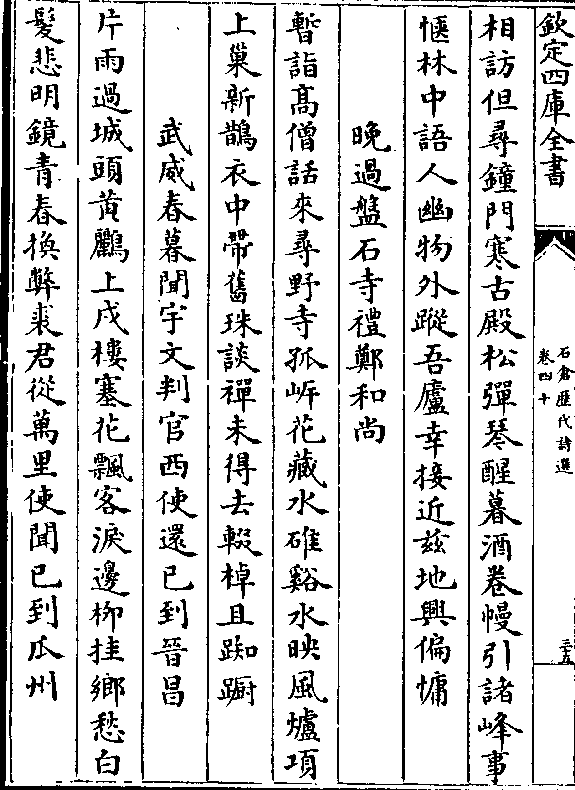 欽定四庫全書
石倉歴代詩選
卷四十
三五
相訪但尋鐘門寒古殿松彈琴醒暮酒卷幔引諸峰事
愜林中語人幽物外蹤吾廬幸接近兹地興偏慵
晚過盤石寺禮鄭和尚
暫詣髙僧話來尋野寺孤岍花藏水碓谿水映風爐項
上巢新鵲衣中帶舊珠談禪未得去輟棹且踟蹰
武威春暮聞宇文判官西使還已到晉昌
片雨過城頭黄鸝上戍樓塞花飄客淚邊柳挂鄉愁白
髪悲明鏡青春換弊裘君從萬里使聞已到瓜州